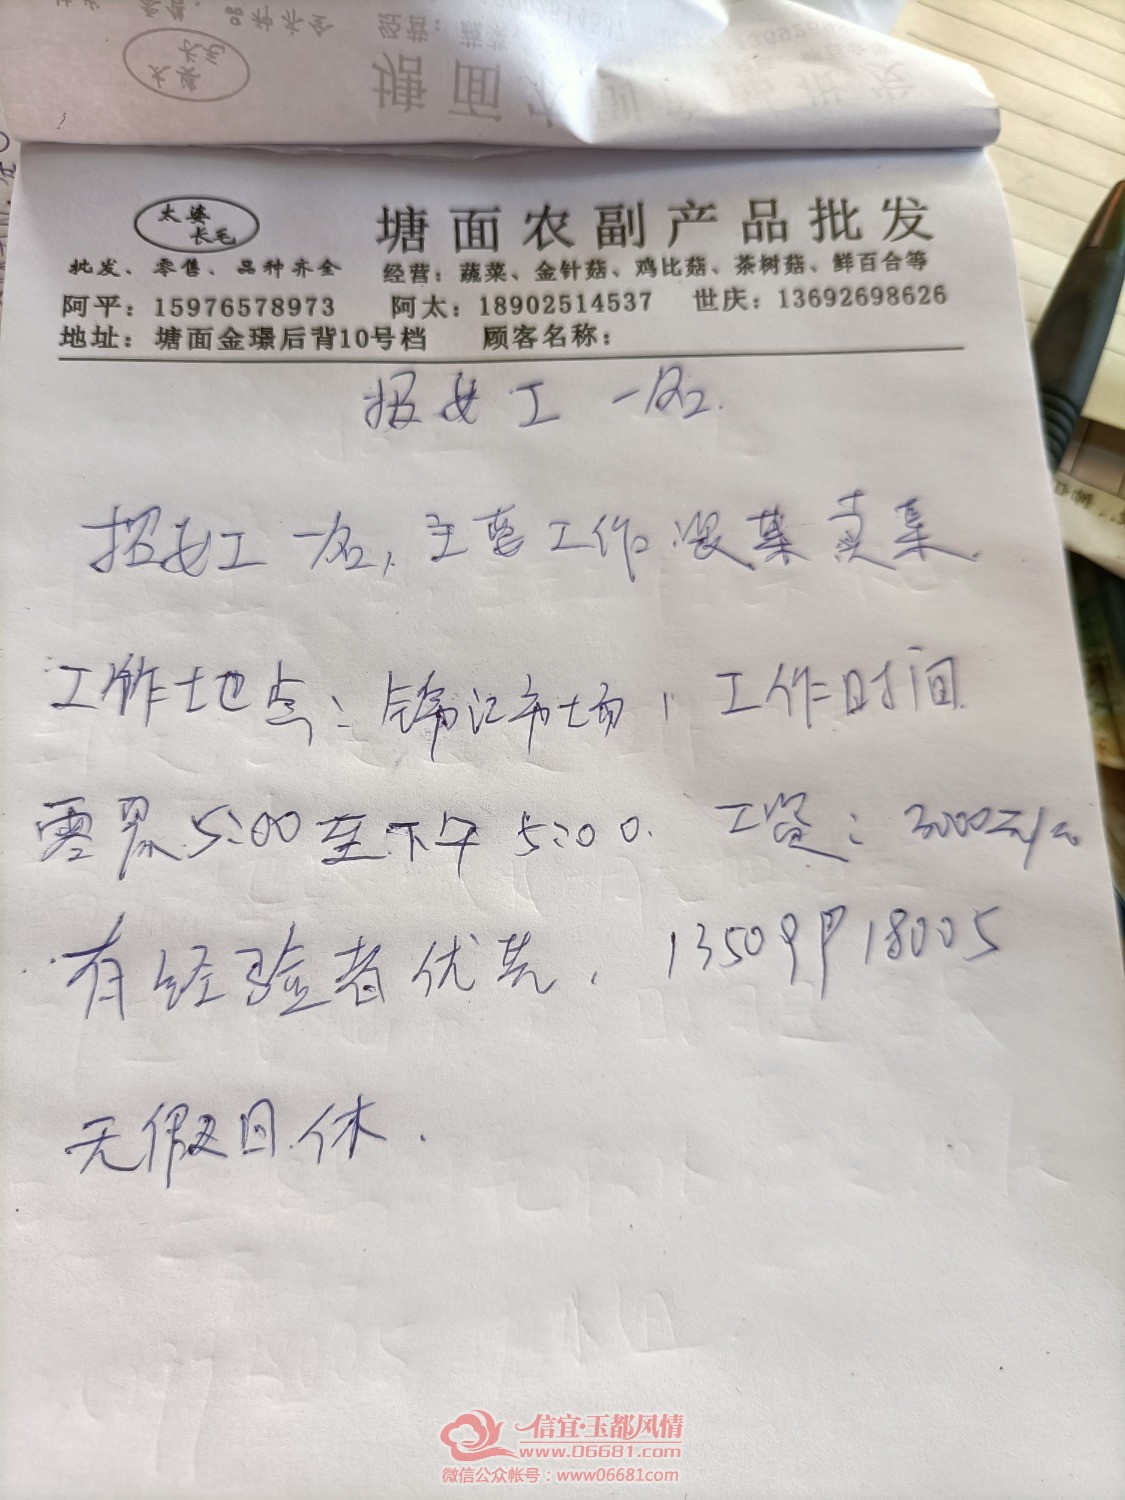 太婆
长毛
塘面农副产品批发
批发、零售、品种齐全
经营：蔬菜、金针菇、鸡比菇、茶树菇、鲜百合等
阿平：15976578973 阿太：18902514537 世庆：13692698626
地址：塘面金璟后背10号档 顾客名称：
招女工一名.
招女工一名，主要工作 菜卖菜.
工作地点：锦江市场，工作时间
零晨5:00至下午5:00. 工资：3000元/
有经验者优先. 13509918005
无假日休.
信宜·玉都风情
www.06681.com
微信公众帐号：www06681com